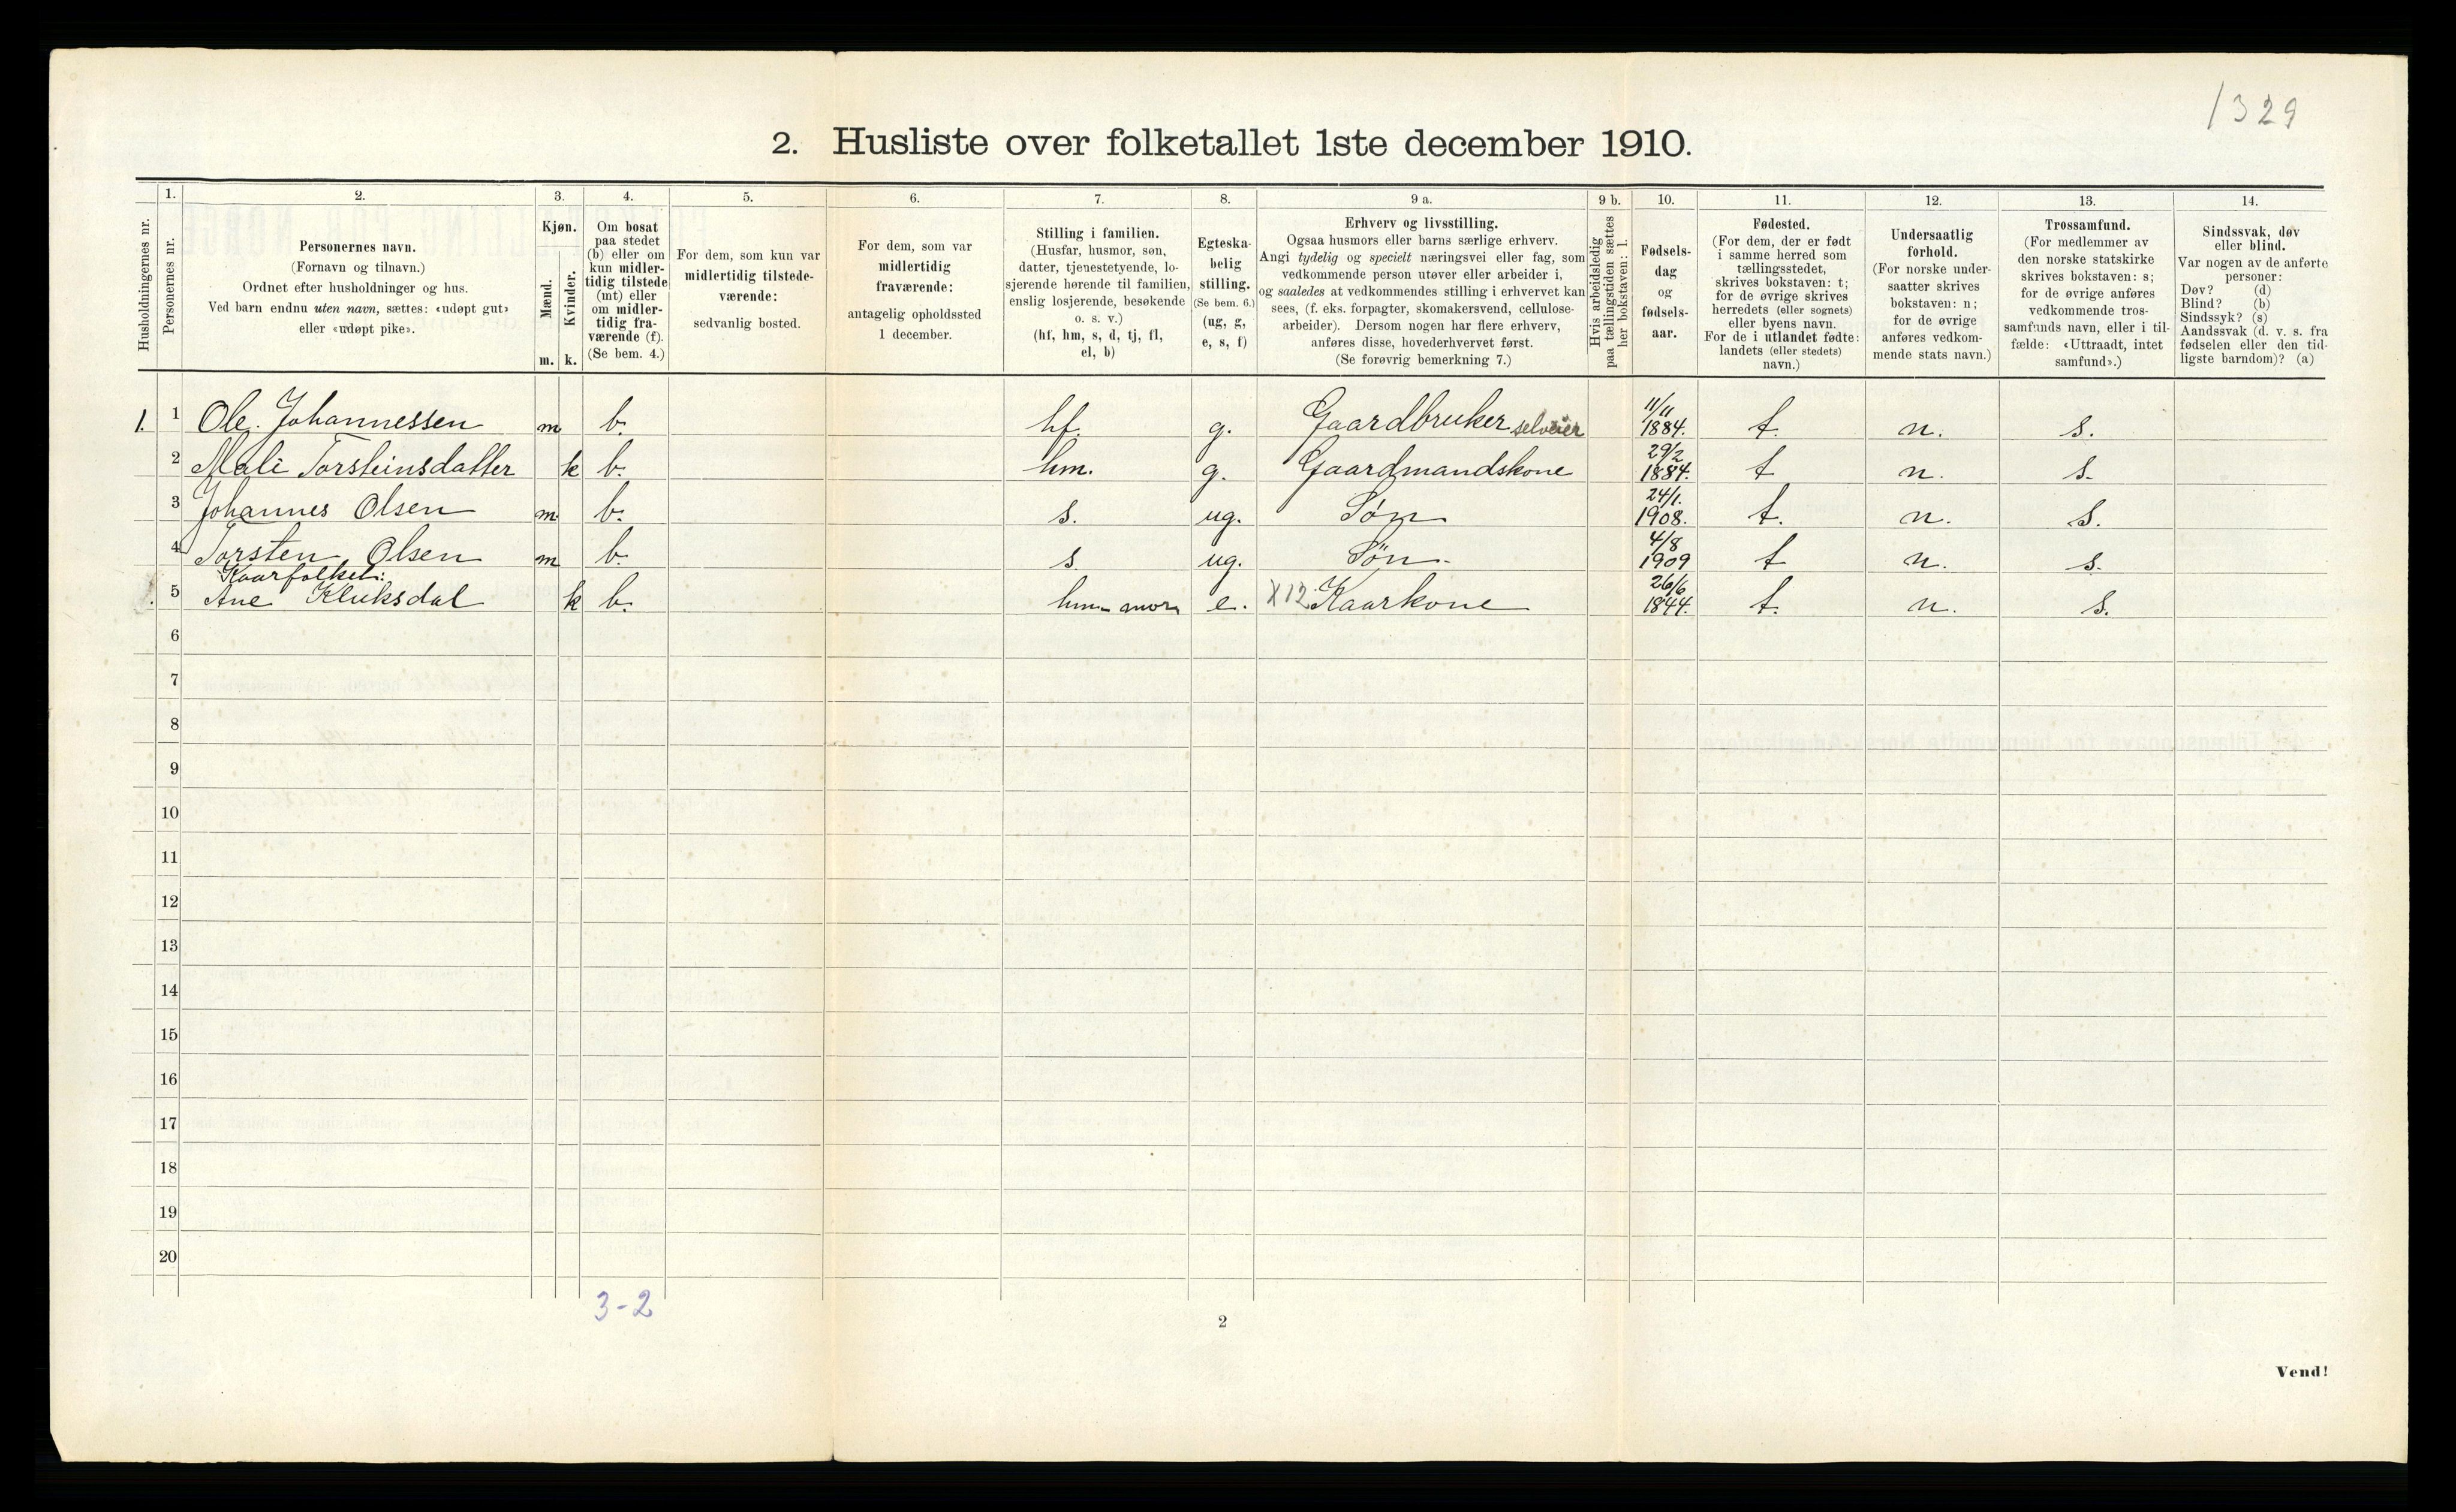 1329
2. Husliste over folketallet 1ste december 1910.
Husholdningernes nr.
1.
Personernes nr.
2.
Personernes navn.
(Fornavn og tilnavn.)
Ordnet efter husholdninger og hus.
Ved barn endnu uten navn, sættes: «udøpt gut»
eller «udøpt pike».
3.
Kjøn.
Mænd.
Kvinder.
m. k.
4.
Om bosat
paa stedet
(b) eller om
kun midler-
tidig tilstede
(mt) eller
om midler-
tidig fra-
værende (f).
(Se bem. 4.)
5.
For dem, som kun var
midlertidig tilstede-
værende:
sedvanlig bosted.
6.
For dem, som var
midlertidig
fraværende:
antagelig opholdssted
1 december.
7.
Stilling i familien.
(Husfar, husmor, søn,
datter, tjenestetyende, lo-
sjerende hørende til familien,
enslig losjerende, besøkende
o. s. v.)
(hf, hm, s, d, tj, fl,
el, b)
8.
Egteska-
belig
stilling.
(Se bem. 6.)
(ug, g,
e, s, f)
9 a.
Erhverv og livsstilling.
Ogsaa husmors eller barns særlige erhverv.
Angi tydelig og specielt næringsvei eller fag, som
vedkommende person utøver eller arbeider i,
og saaledes at vedkommendes stilling i erhvervet kan
sees, (f. eks. forpagter, skomakersvend, cellulose-
arbeider). Dersom nogen har flere erhverv,
anføres disse, hovederhvervet først.
(Se forøvrig bemerkning 7.)
9 b.
Hvis arbeidsledig
paa tællingstiden sættes
her bokstaven: l.
10.
Fødsels-
dag
og
fødsels-
aar.
11.
Fødested.
(For dem, der er født
i samme herred som
tællingsstedet,
skrives bokstaven: t;
for de øvrige skrives
herredets (eller sognets)
eller byens navn.
For de i utlandet fødte:
landets (eller stedets)
navn.)
12.
Undersaatlig
forhold.
(For norske under-
saatter skrives
bokstaven: n;
for de øvrige
anføres vedkom-
mende stats navn.)
13.
Trossamfund.
(For medlemmer av
den norske statskirke
skrives bokstaven: s;
for de øvrige anføres
vedkommende tros-
samfunds navn, eller i til-
fælde: «Uttraadt, intet
samfund».)
14.
Sindssvak, døv
eller blind.
Var nogen av de anførte
personer:
Døv? (d)
Blind? (b)
Sindssyk? (s)
Aandssvak (d. v. s. fra
fødselen eller den tid-
ligste barndom)? (a)
1. 1 Ole Johannessen m b. hf. g. Gaardbruker selveier 11/11 1884. t. n. s.
2 Mali Torsteinsdatter k b. hm. g. Gaardmandskone 29/2 1884. t n. s.
3 Johannes Olsen m. b. s. ug. Søn 24/1. 1908. t. n. s.
4 Torsten Olsen m b. s ug. Søn. 4/8 1909 t n. s.
Kaarfolket:
5 Ane Kluksdal k b. hm mor e. X12 Kaarkone 26/6 1844. t. n. s.
6
7
8
9
10
11
12
13
14
15
16
17
18
19
20
3-2
2
Vend!